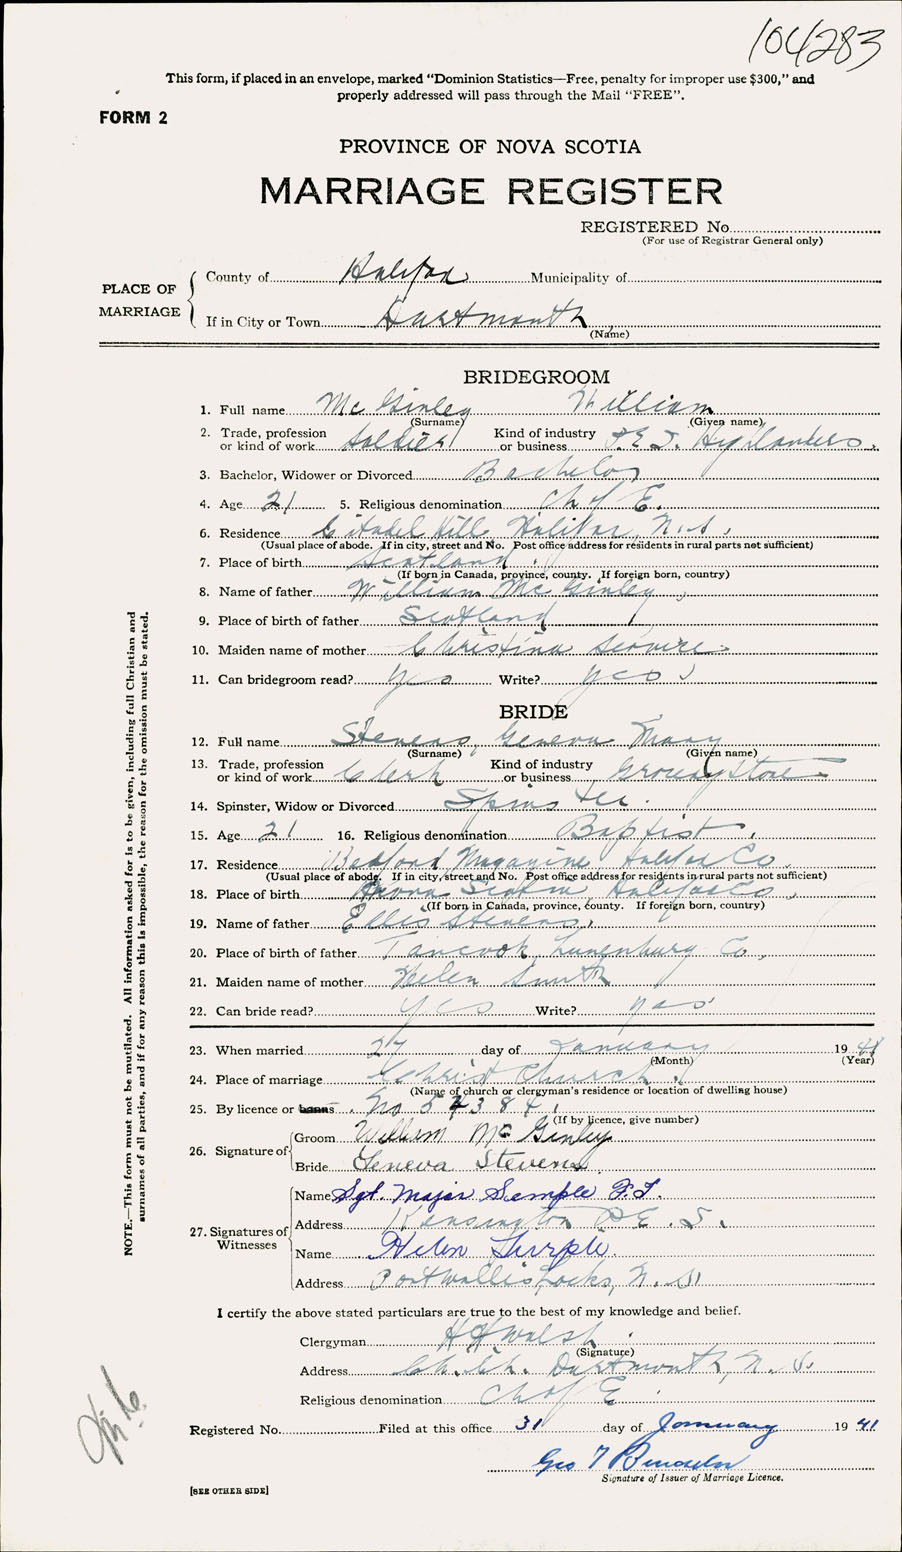 104283
This form, if placed in an envelope, marked “Dominion Statistics—Free, penalty for improper use $300,” and
properly addressed will pass through the Mail “FREE”.
FORM 2
PROVINCE OF NOVA SCOTIA
MARRIAGE REGISTER
REGISTERED No.
(For use of Registrar General only)
PLACE OF MARRIAGE
County of Halifax Municipality of
If in City or Town Dartmouth
(Name)
BRIDEGROOM
1. Full name McGinley William
(Surname) (Given name)
2. Trade, profession or kind of work Soldier Kind of industry or business P.E.I. Highlanders.
3. Bachelor, Widower or Divorced Bachelor
4. Age 21 5. Religious denomination Ch of E.
6. Residence Citadel Hill Halifax, N.S.
(Usual place of abode. If in city, street and No. Post office address for residents in rural parts not sufficient)
7. Place of birth Scotland.
(If born in Canada, province, county. If foreign born, country)
8. Name of father William McGinley
9. Place of birth of father Scotland
10. Maiden name of mother Christina Service
11. Can bridegroom read? yes Write? yes
BRIDE
12. Full name Stevens, Geneva Mary
(Surname) (Given name)
13. Trade, profession or kind of work Clerk Kind of industry or business Grocery Store
14. Spinster, Widow or Divorced Spinster.
15. Age 21 16. Religious denomination Baptist.
17. Residence Bedford Magazine Halifax Co.
(Usual place of abode. If in city, street and No. Post office address for residents in rural parts not sufficient)
18. Place of birth Nova Scotia, Halifax Co,
(If born in Canada, province, county. If foreign born, country)
19. Name of father Ellis Stevens,
20. Place of birth of father Tancook Lunenburg Co,
21. Maiden name of mother Helen Smith
22. Can bride read? yes Write? yes
23. When married 27 day of January 1941
(Month) (Year)
24. Place of marriage Christ Church
(Name of church or clergyman's residence or location of dwelling house)
25. By licence or banns. No 54384.
(If by licence, give number)
26. Signature of
Groom William McGinley
Bride Geneva Stevens
27. Signatures of Witnesses
Name Sgt. Major Semple F.T.
Address Kensington P.E.I.
Name Helen
Address Portwallis Locks, N.S.
I certify the above stated particulars are true to the best of my knowledge and belief.
Clergyman H H Walsh
(Signature)
Address Ch. Ch. Dartmouth, N.S.
Religious denomination Ch of E
Registered No. Filed at this office 31 day of January 1941
Geo T
Signature of Issuer of Marriage Licence.
[SEE OTHER SIDE]
NOTE.—This form must not be mutilated. All information asked for is to be given, including full Christian and
surnames of all parties, and if for any reason this is impossible, the reason for the omission must be stated.